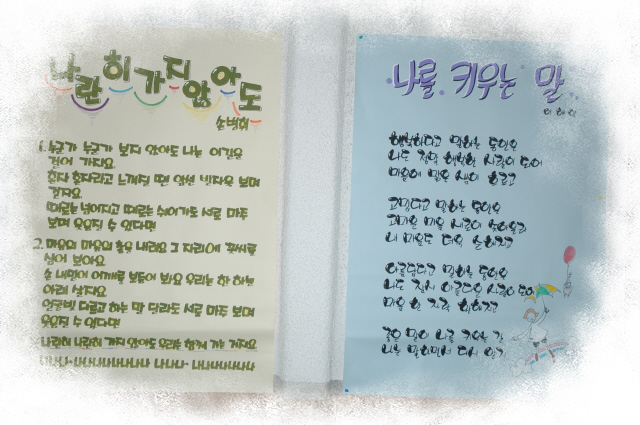 나란히 가지 않아도
손병휘
1. 누군가 누군가 보지 않아도 나는 이길을
걸어 가지요
혼자 혼자라고 느껴질 땐 앞선 발자욱 보며
걷지요
때로는 넘어지고 때로는 쉬어가도 서로 마주
보며 웃음질 수 있다면
2. 마음의 마음의 활을 내리요 그 자리에 꽃씨를
심어 보아요
손 내밀어 어깨를 보듬어 봐요 우리는 한 하늘
아래 살지요
얼굴빛 다르고 하는 말 달라도 서로 마주 보며
웃음질 수 있다면
나란히 나란히 가지 않아도 우리는 함께 가는 거지요
나를 키우는 말
이해인
행복하다고 말하는 동안은
나도 정말 행복한 사람이 되어
마음에 맑은 샘이 흐르고
고맙다고 말하는 동안은
고마운 마음 새로이 솟아올라
내 마음도 더욱 순해지고
아름답다고 말하는 동안은
나도 잠시 아름다운 사람이 되어
마음 한 자락 환해지고
좋은 말이 나를 키우는 걸
나는 말하면서 다시 알지